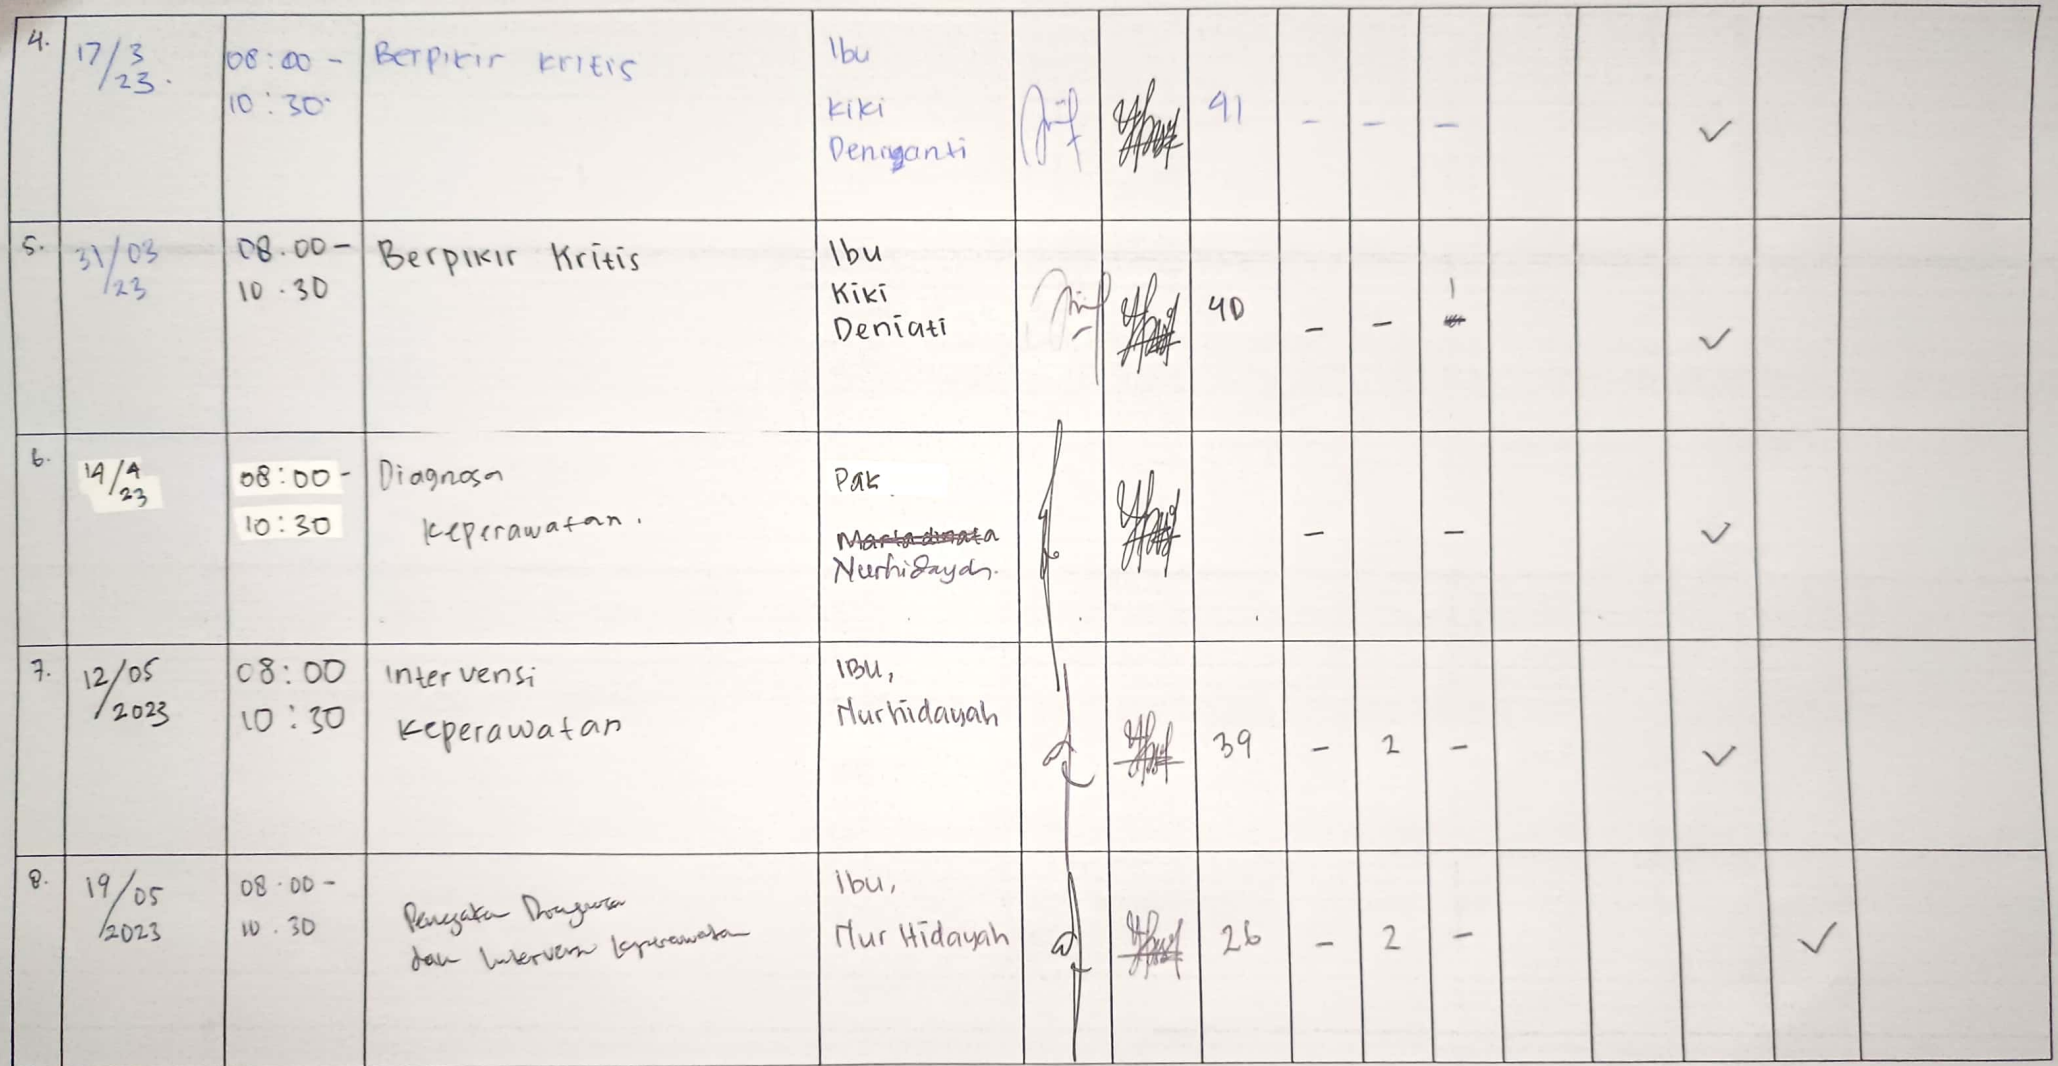 4. 17/3/23. 08:00 - 10:30 Berpikir Kritis Ibu Kiki 41 - - - ✓
5. 31/03/23 08.00 - 10.30 Berpikir Kritis Ibu Kiki Deniati 40 - - 1 ✓
6. 14/4/23 08:00 - 10:30 Diagnosa Keperawatan. Pak Nurhidayah. - - ✓
7. 12/05/2023 08:00 10:30 Intervensi Keperawatan IBU, Nurhidayah 39 - 2 - ✓
8. 19/05/2023 08.00 - 10.30 dan Intervensi keperawatan Ibu, Nur Hidayah 26 - 2 - ✓